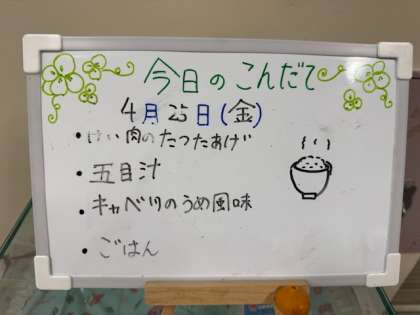 今日のこんだて
4月25日(金)
・けい肉のたつたあげ
・五目汁
・キャベツのうめ風味
・ごはん